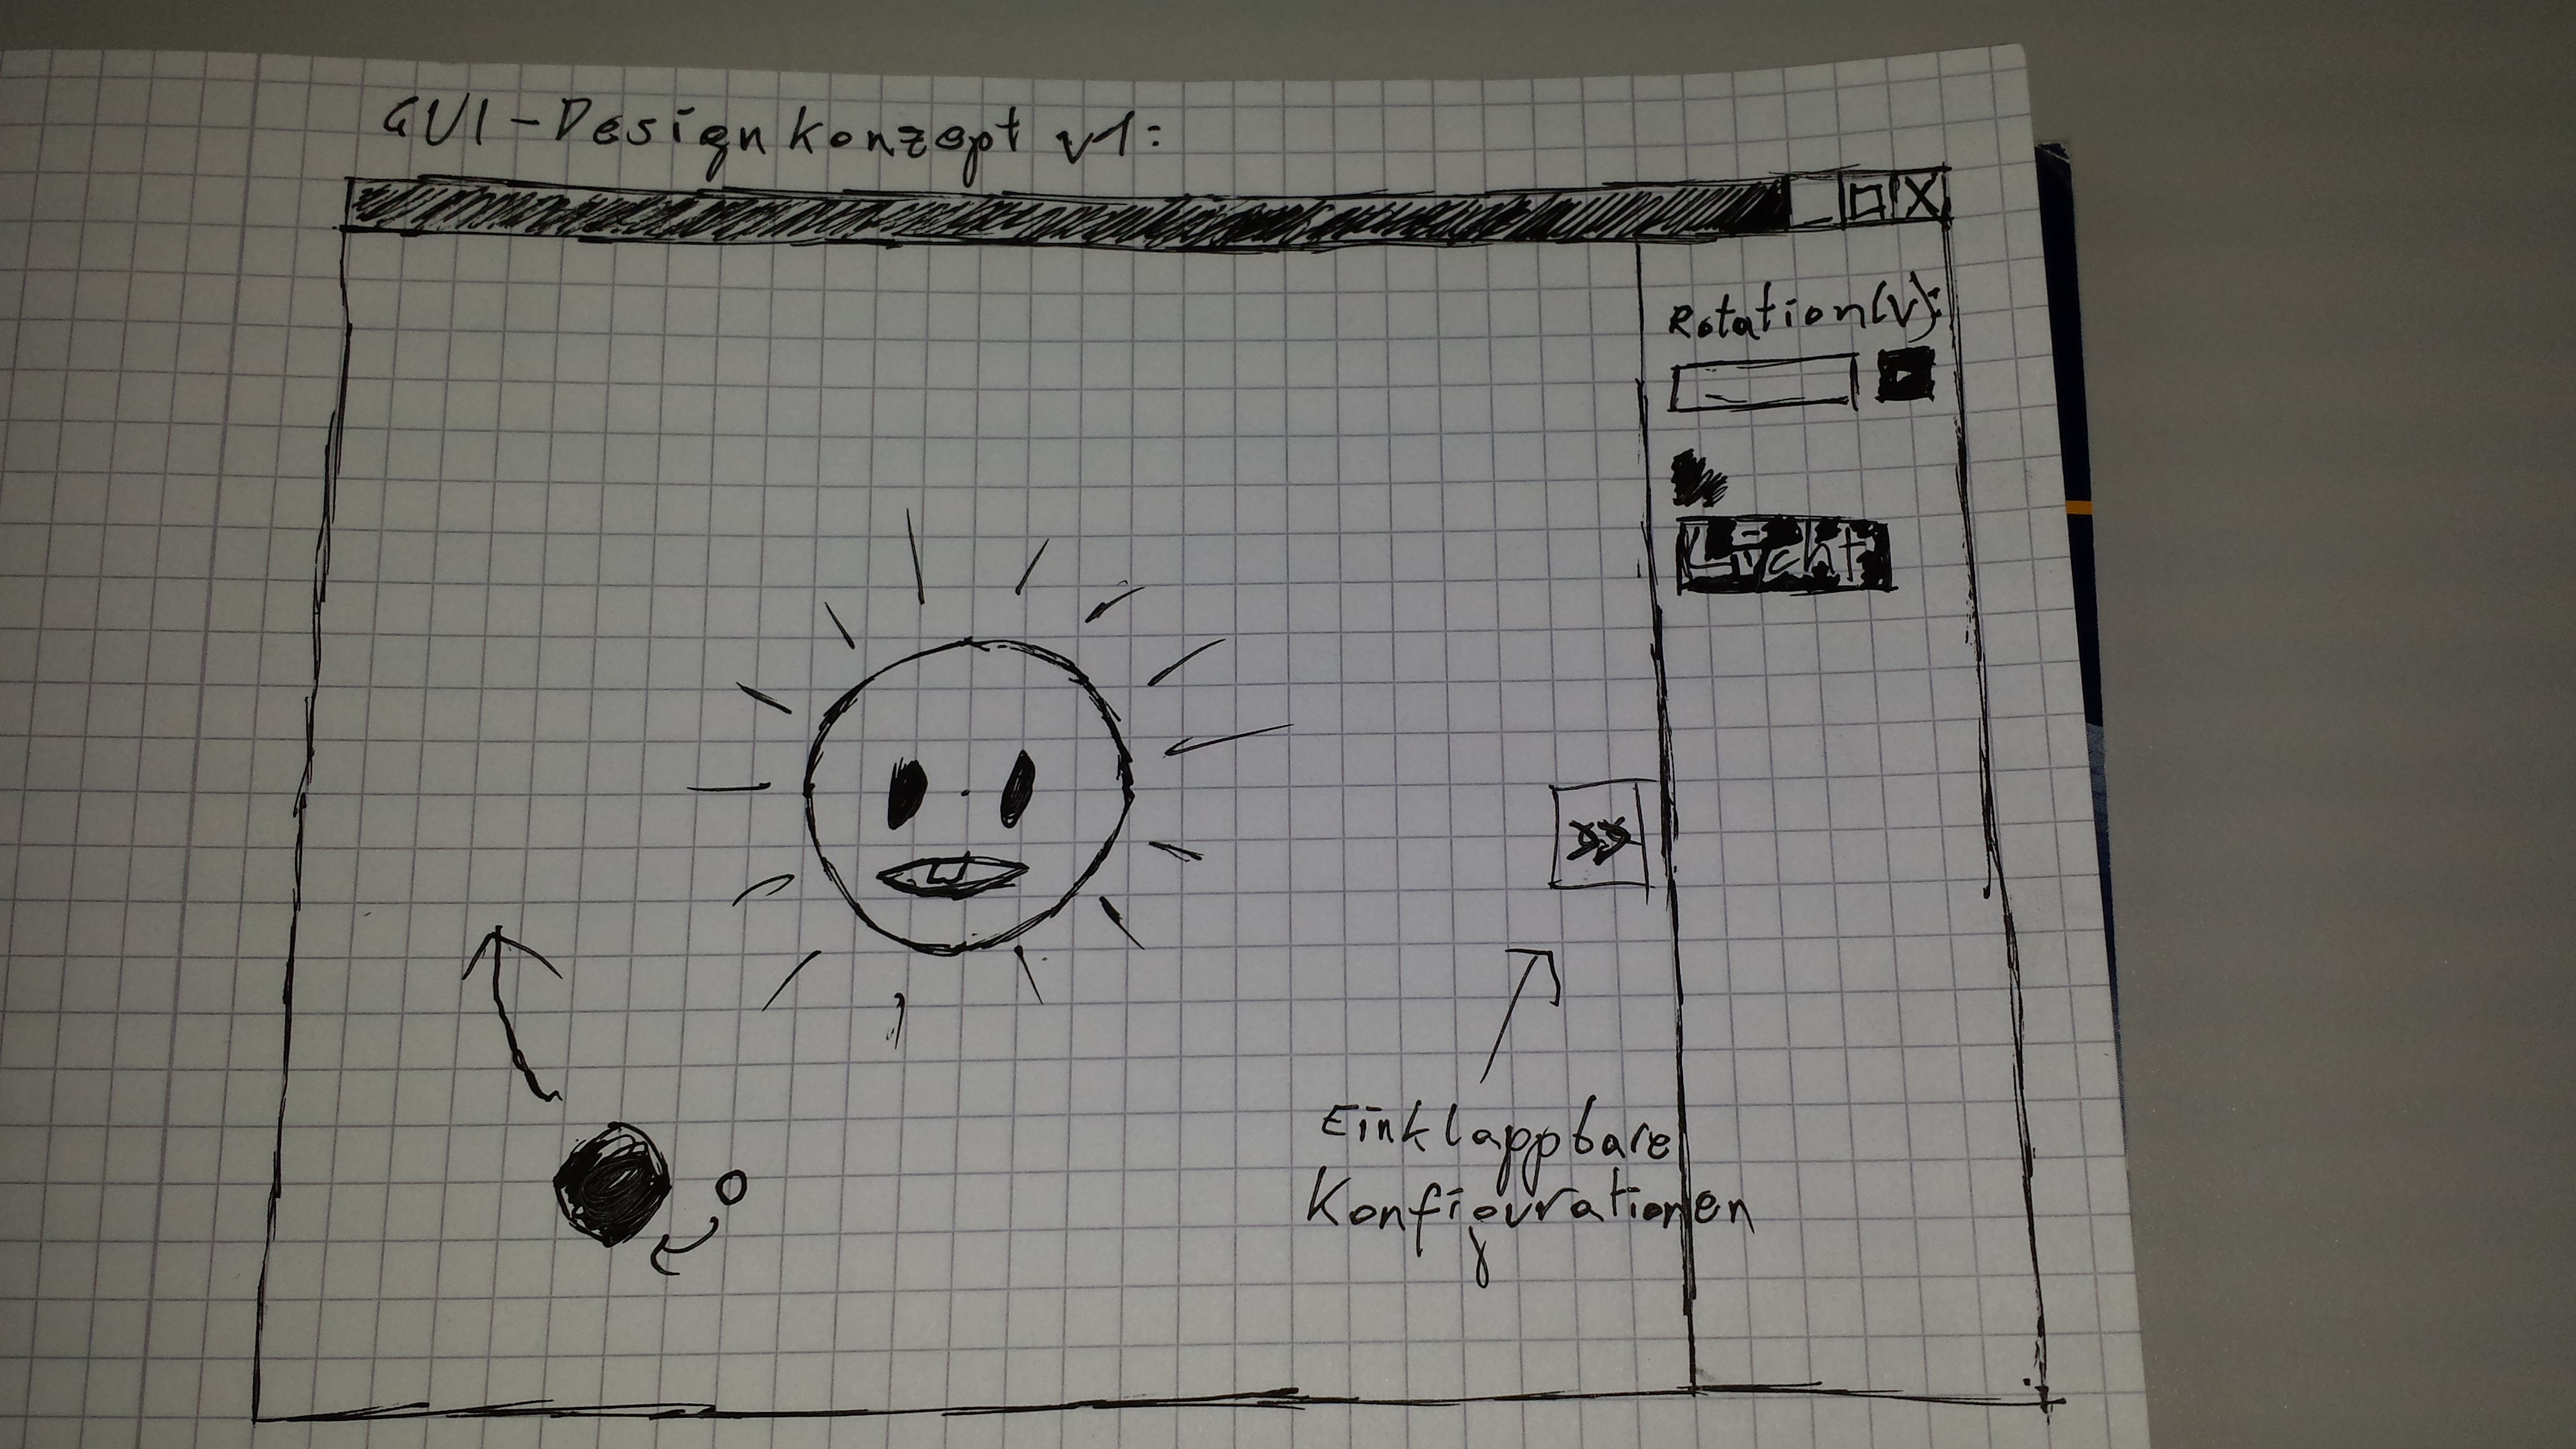 GUI-Designkonzept v1:
X
Rotation(v):
Licht
>>
Einklappbare
Konfigurationen